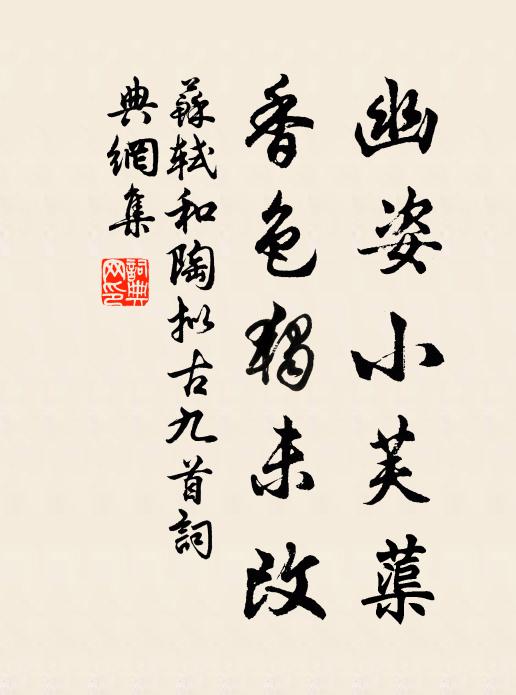 幽姿小芙蕖
香色獨未改
蘇軾和陶拟古九首詞
典網集
詞典
网印